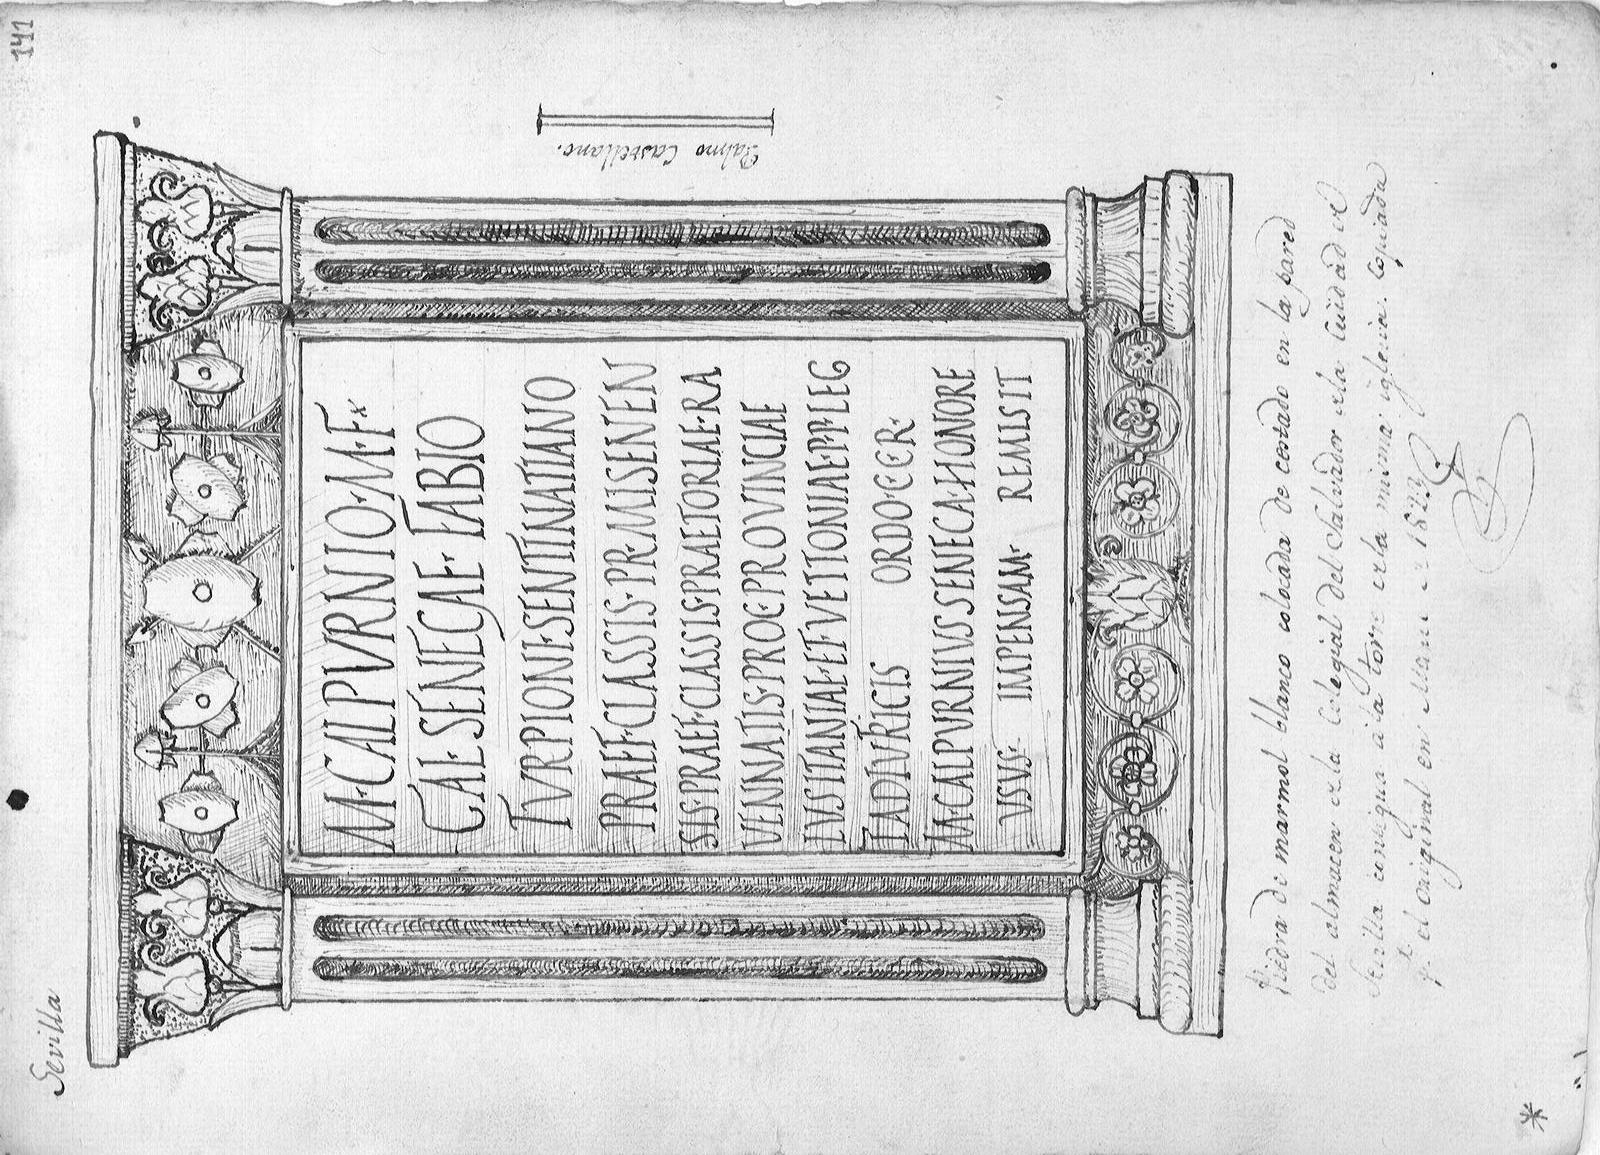 141
Sevilla
M·CALPVRNIO·M·F·
GAL·SENECAE·FABIO
TVRPIONI·SENTINATIANO
PRAEF·CLASSIS·PR·MISENEN
SIS·PRAEF·CLASSIS·PRAETORIAE·RA
VENNATIS·PROC·PROVINCIAE
LVSITANIAE·ET·VETTONIAE·P·P·LEG
I·ADIVTRICIS ORDO·C·C·R·
M·CALPVRNIVS SENECA·HONORE
VSVS· IMPENSAM· REMISIT
Palmo Castellano.
Piedra de marmol blanco colocada de costado en la pared
del almacen de la Colegial del Salvador de la Ciudad de
Sevilla contigua à la torre de la misma iglesia. Copiada
pr. el original en